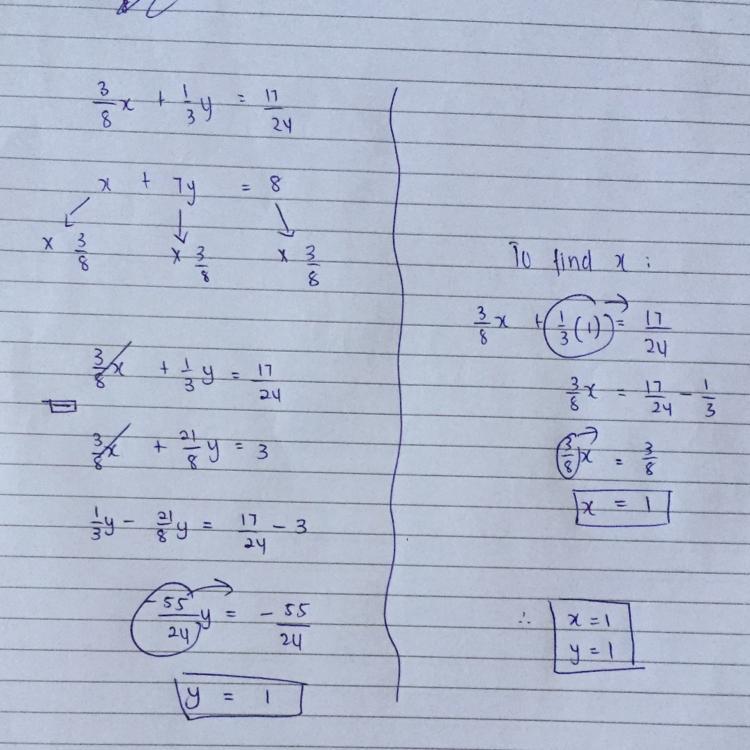 3/8 x + 1/3 y = 17/24
x + 7y = 8
x 3/8 x 3/8 x 3/8
3/8 x + 1/3 y = 17/24
-
3/8 x + 21/8 y = 3
1/3 y - 21/8 y = 17/24 - 3
-55/24 y = -55/24
y = 1
To find x :
3/8 x + 1/3 (1) = 17/24
3/8 x = 17/24 - 1/3
3/8 x = 3/8
x = 1
∴ x = 1
y = 1